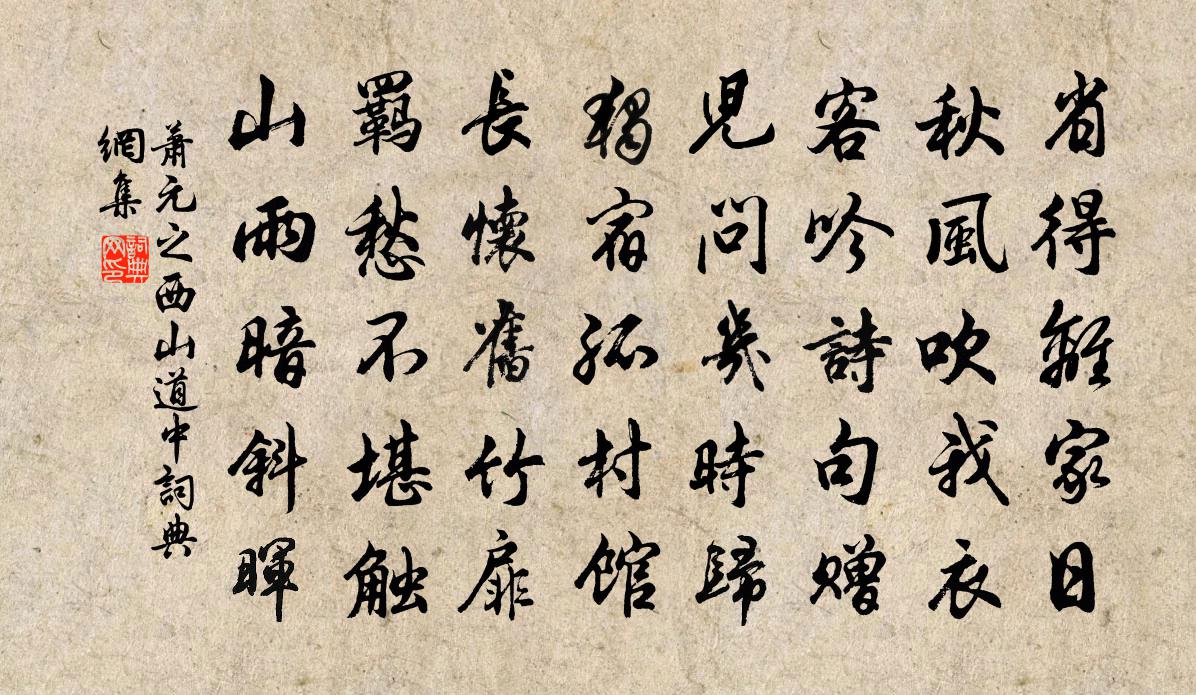 省得離家日
秋風吹我衣
客吟詩句贈
兒問幾時歸
獨宿孤村館
長懷舊竹扉
羈愁不堪触
山雨暗斜暉
蕭元之西山道中詞典
網集
詞典网印